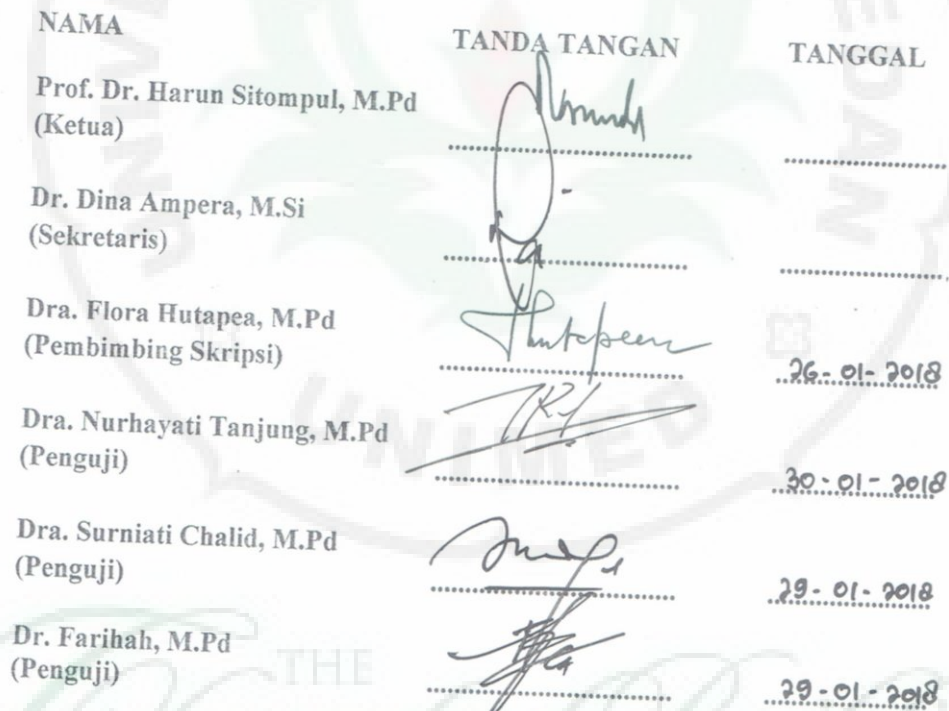 NAMA TANDA TANGAN TANGGAL
Prof. Dr. Harun Sitompul, M.Pd
(Ketua)
Dr. Dina Ampera, M.Si
(Sekretaris)
Dra. Flora Hutapea, M.Pd
(Pembimbing Skripsi) 26-01-2018
Dra. Nurhayati Tanjung, M.Pd
(Penguji) 30-01-2018
Dra. Surniati Chalid, M.Pd
(Penguji) 29-01-2018
Dr. Farihah, M.Pd
(Penguji) 29-01-2018
UNIMED
THE